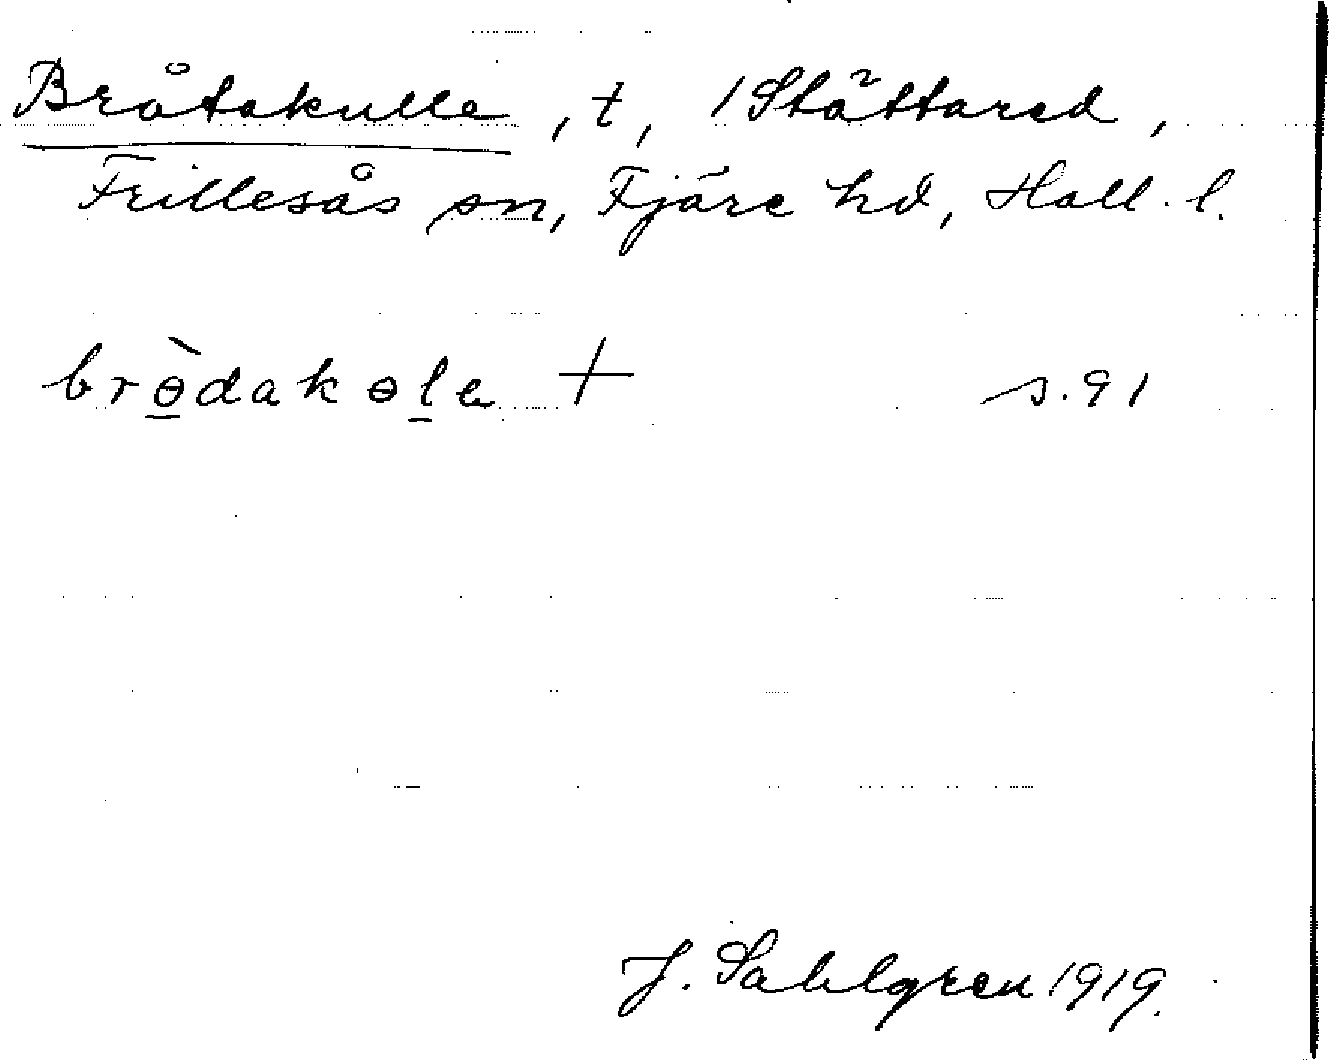 Bråtakulle, t, 1 Stättared,
Frillesås sn, Fjäre hd, Hall. l.
brɵ̲̀dakɵl̲a + s. 91
J. Sahlgren 1919.